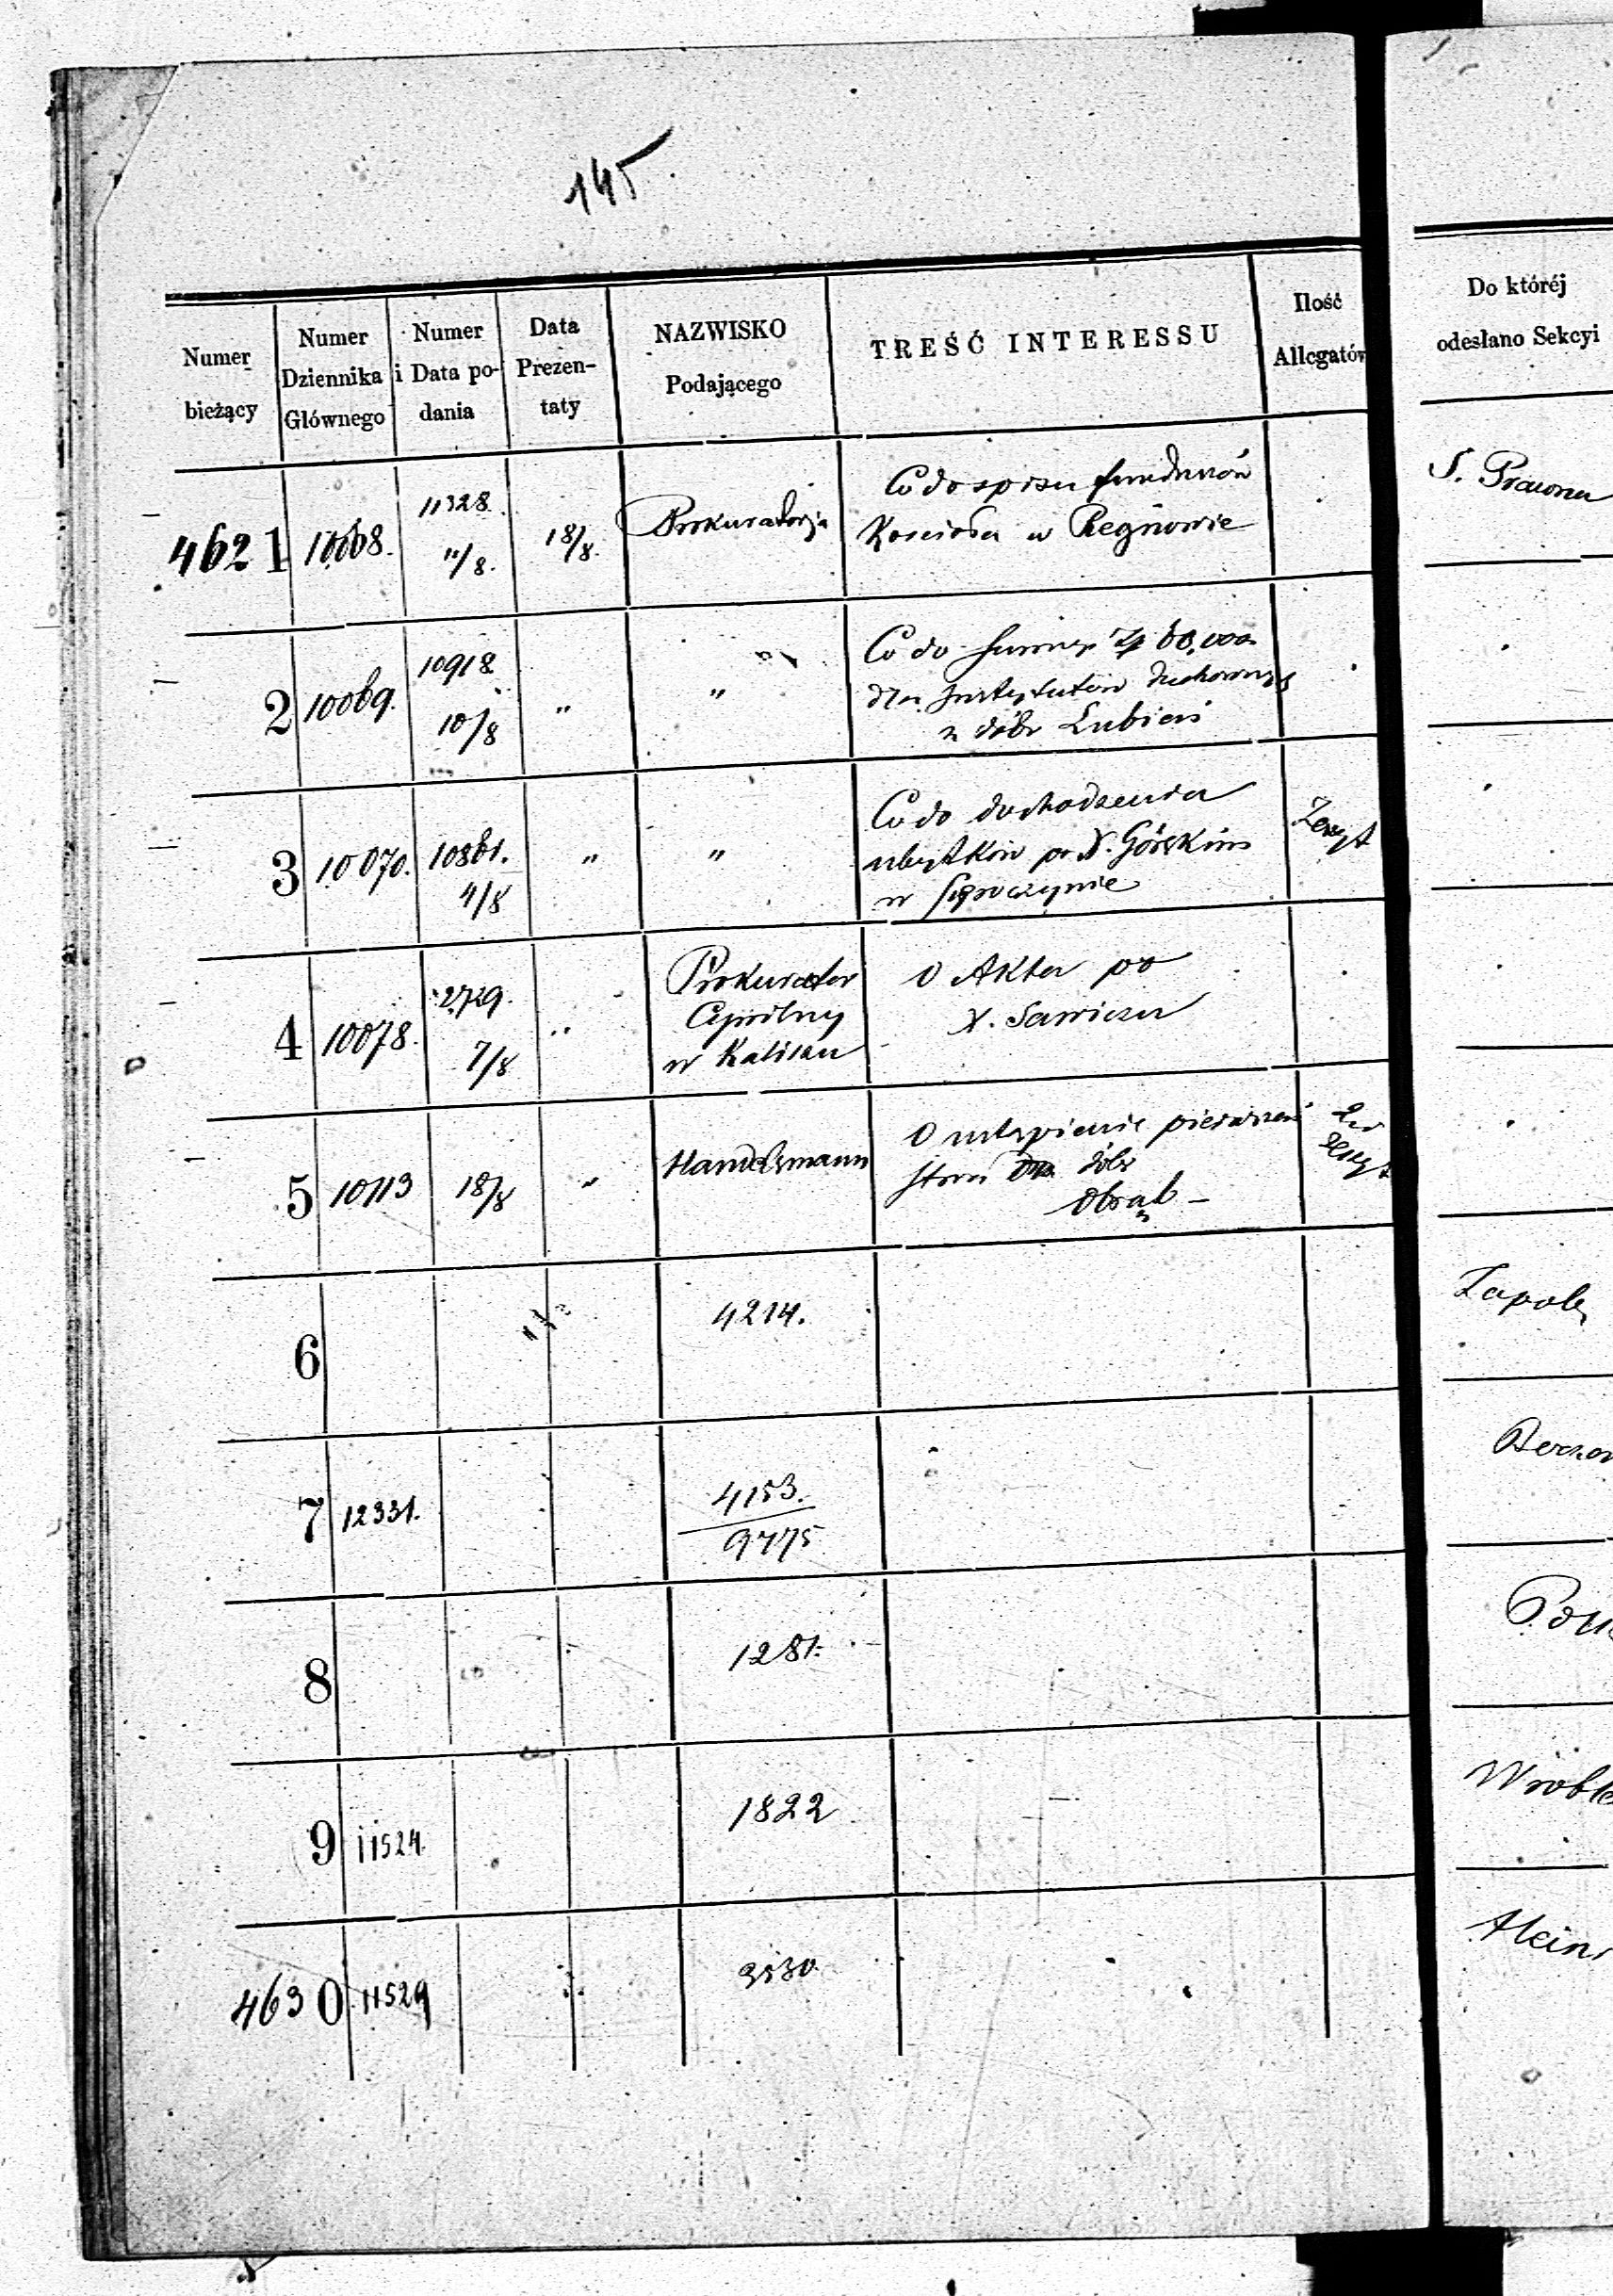 145
Numer
bieżący
Numer
Dziennika
Głównego
Numer
i Data po-
dania
Data
Prezen-
taty
NAZWISKO
Podającego
TREŚĆ INTERESSU
Ilość
Allegatów
Do któréj
odesłano Sekcyi
4621
10068.
11328.
11/8.
18/8.
Prokuratorja
Co do spisu funduszów
Kościoła w Regnowie
S. Prawna
2
10069.
10918
10/8
"
"
Co do Summy Zp 60,000
dla Instytutów duchownych
z dóbr Łubień
3
10070.
10861.
4/8
"
"
Co do dochodzenia
ubytków po X. Górskim
w
Zeszyt
4
10078.
2729.
7/8
"
Prokurator
Cywilny
w Kaliszu
O Akta po
X. Sawiczu
5
10113
18/8
"
Handelsmann
O ustąpienie pierwszeń
stwa dóbr
Obrąb –
Zeszyt
6
4214.
7
12331.
4153.
9775
8
1281.
9
11524.
1822
Wróble
4630
11529
3530.